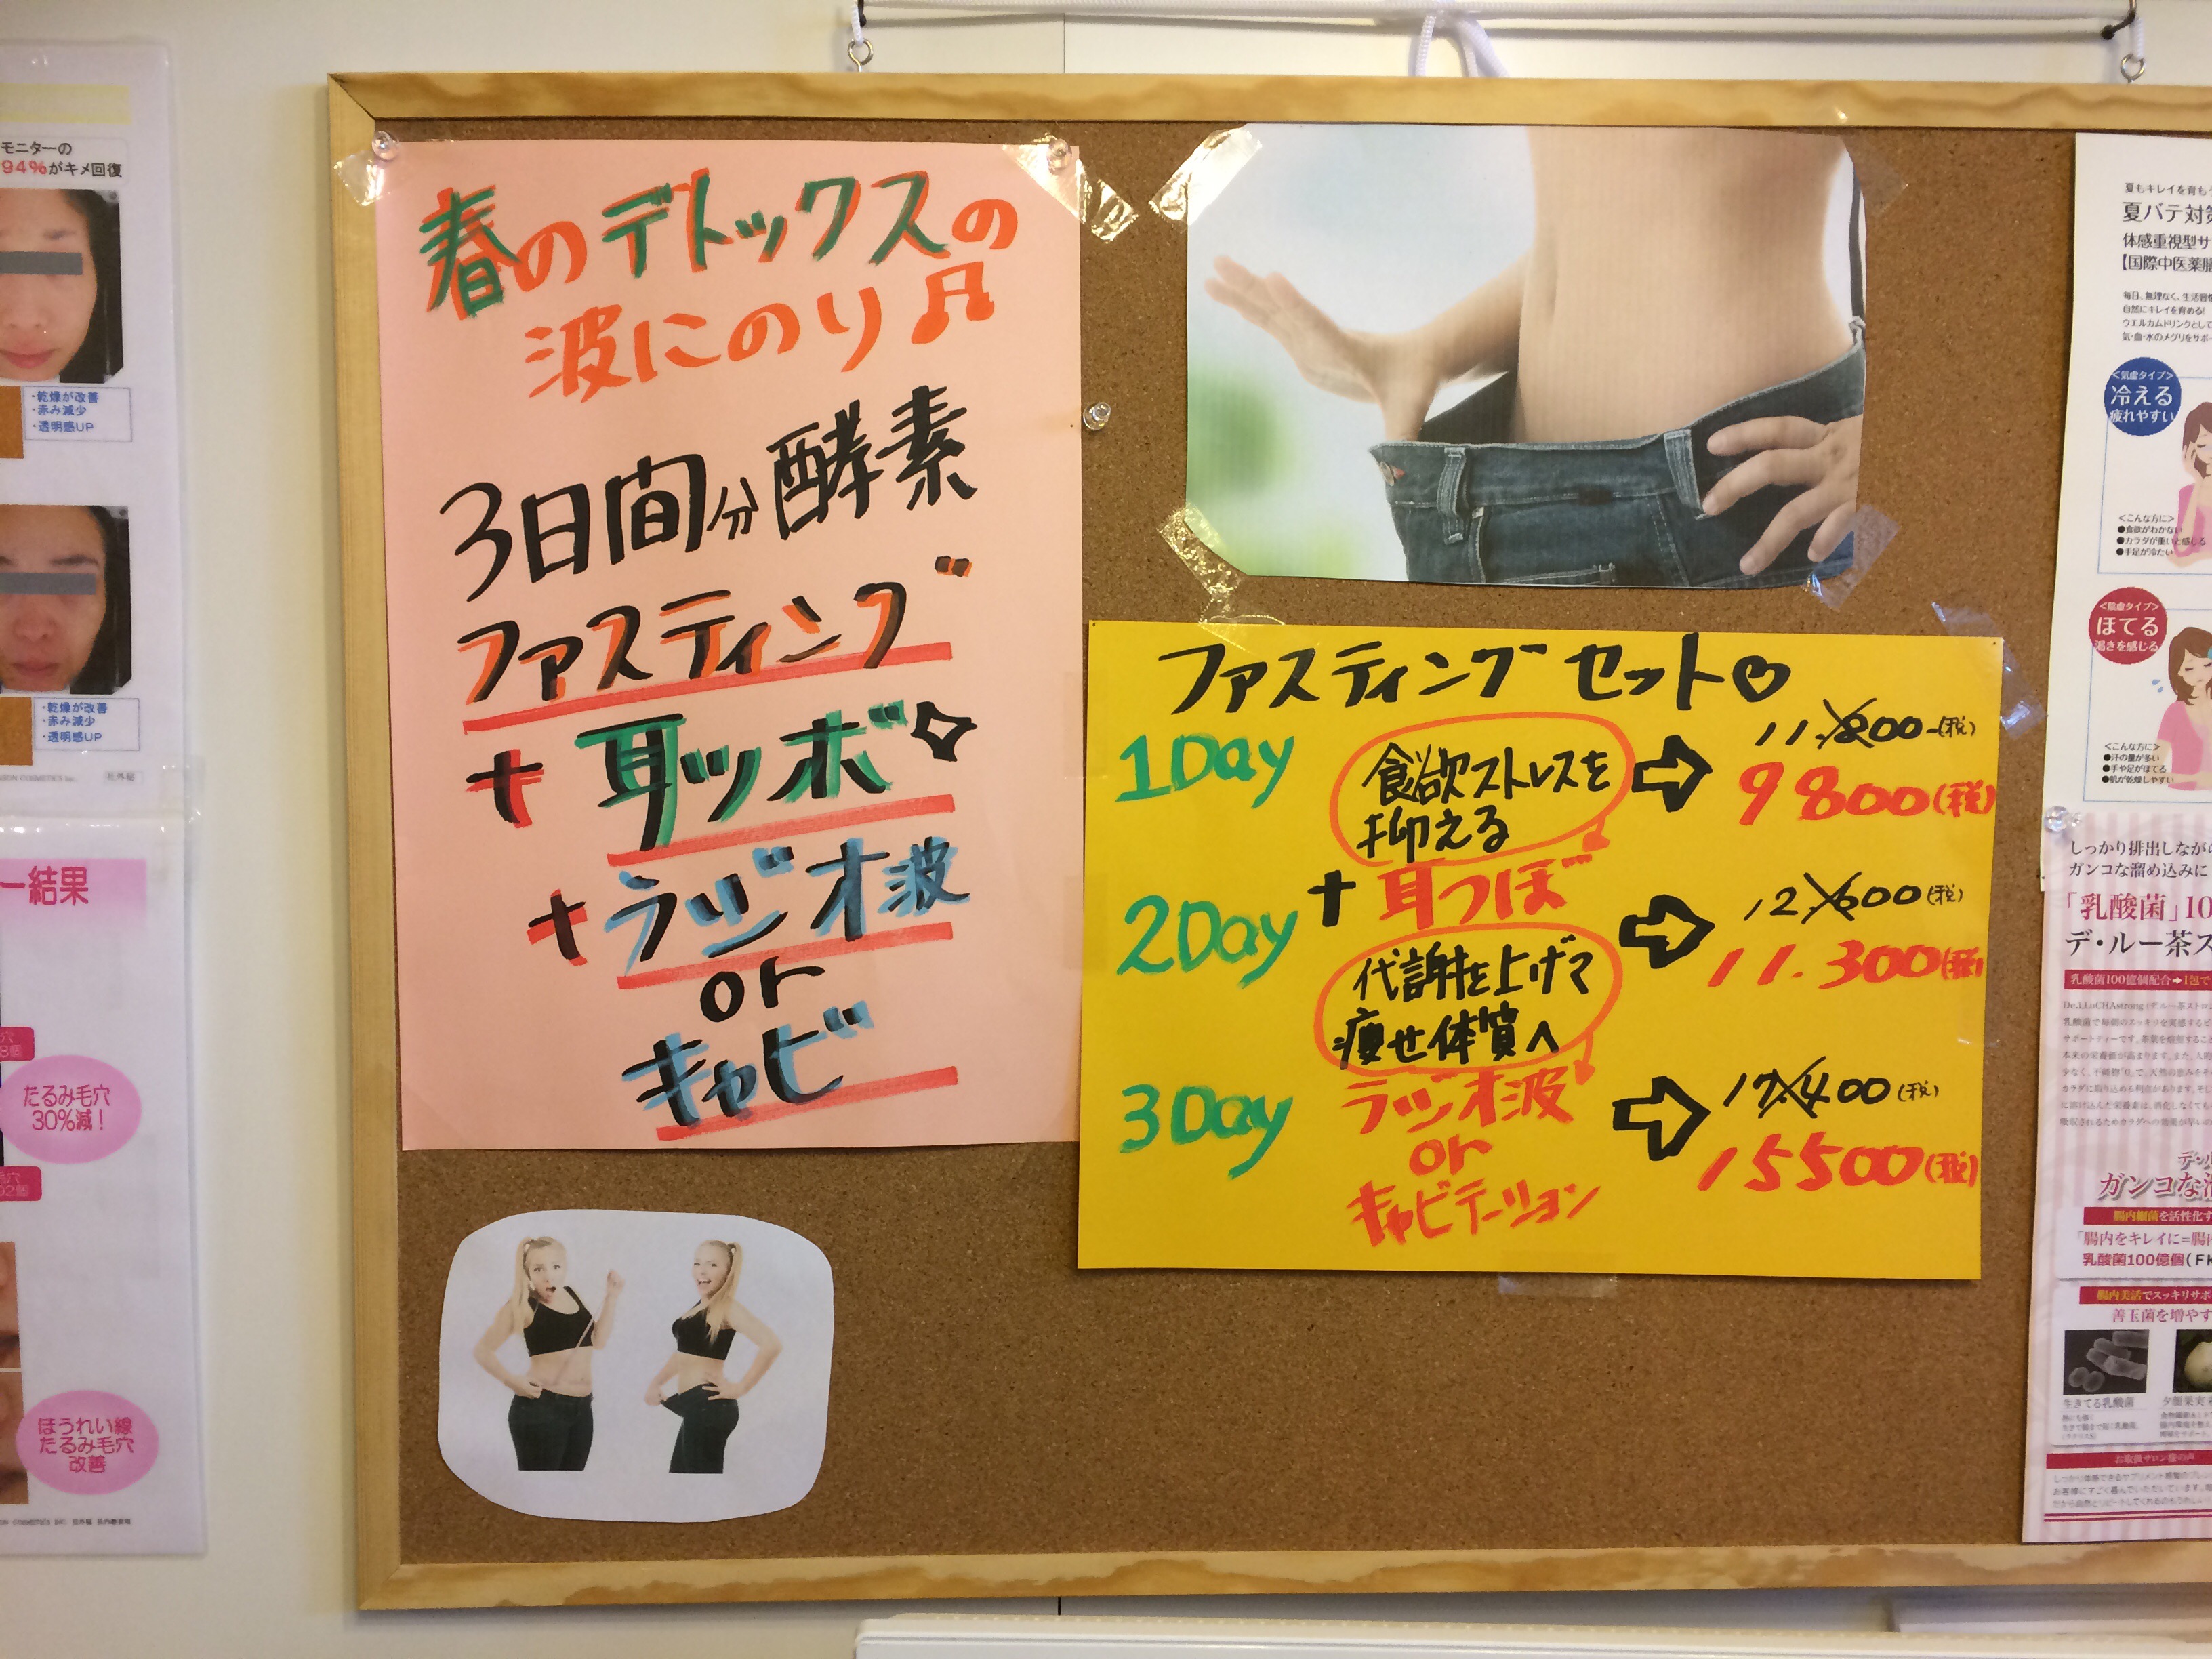 モニターの
94%がキメ回復
・乾燥が改善
・赤み減少
・透明感UP
・乾燥が改善
・赤み減少
・透明感UP
社外秘
ー結果
たるみ毛穴
30%減！
ほうれい線
たるみ毛穴
改善
春のデトックスの
波にのり♫
3日間分酵素
ファスティング
+耳ツボ
+ラジオ波
or
キャビ
ファスティングセット♡
1Day
食欲ストレスを
抑える
11.800-(税)
9800(税)
2Day
+耳つぼ
12600(税)
11.300(税)
代謝を上げて
痩せ体質へ
3Day
ラジオ波
or
キャビテーション
17.400(税)
15500(税)
夏もキレイを育も
夏バテ対策
体感重視型サ
【国際中医薬膳
毎日、無理なく、生活習慣
自然にキレイを育める!
ウエルカムドリンクとして
気・血・水のメグリをサポー
<気虚タイプ>
冷える
疲れやすい
<こんな方に>
●食欲がわかない
●カラダが重いと感じる
●手足が冷たい
ほてる
渇きを感じる
<こんな方に>
●汗の量が多い
●手や足がほてる
●肌が乾燥しやすい
しっかり排出しながら
ガンコな溜め込みに
「乳酸菌」10
デ・ルー茶ス
乳酸菌100億個配合➡1包で
ガンコな溜
腸内細菌を活性化す
「腸内をキレイに=腸内
乳酸菌100億個(FK
腸内美活でスッキリサポ
善玉菌を増やす
生きてる乳酸菌
夕顔果実
お取扱サロン様の声